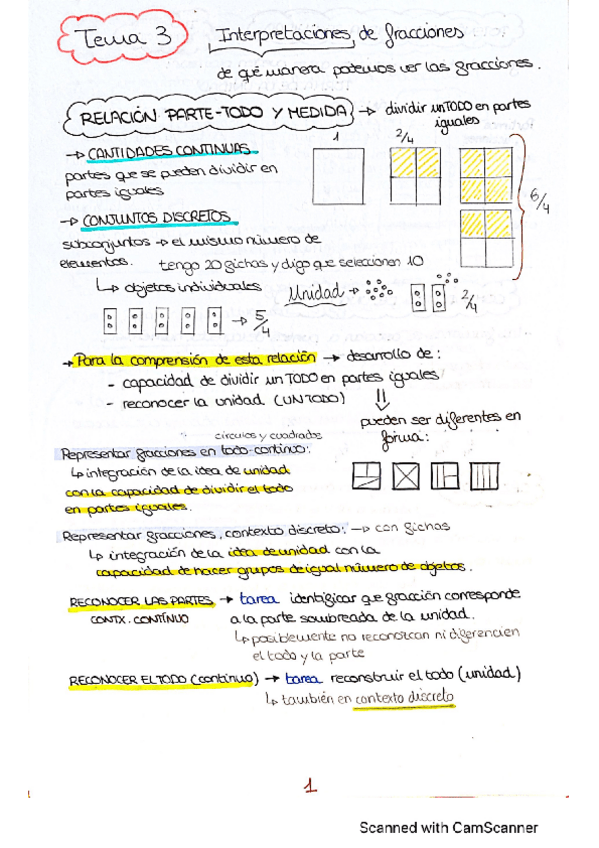 Tema 3
Interpretaciones de fracciones
de qué manera podemos ver las fracciones.
RELACIÓN PARTE-TODO Y MEDIDA → dividir un TODO en partes
iguales
→ CANTIDADES CONTINUAS
1
2/4
partes que se pueden dividir en
partes iguales
6/4
→ CONJUNTOS DISCRETOS
subconjuntos → el mismo número de
elementos. tengo 20 fichas y digo que seleccionen 10
↳ objetos individuales
Unidad →
2/4
→ 5/4
→ Para la comprensión de esta relación → desarrollo de:
- capacidad de dividir un TODO en partes iguales
- reconocer la unidad (UN TODO)
⇓
pueden ser diferentes en
forma:
círculos y cuadrados
Representar fracciones en todo-continuo:
↳ integración de la idea de unidad
con la capacidad de dividir el todo
en partes iguales.
Representar fracciones, contexto discreto: → con fichas
↳ integración de la idea de unidad con la
capacidad de hacer grupos de igual número de objetos.
RECONOCER LAS PARTES → tarea identificar que fracción corresponde
CONTX. CONTÍNUO
a la parte sombreada de la unidad.
↳ posiblemente no reconozcan ni diferencien
el todo y la parte
RECONOCER EL TODO (continuo) → tarea reconstruir el todo (unidad)
↳ también en contexto discreto
1
Scanned with CamScanner